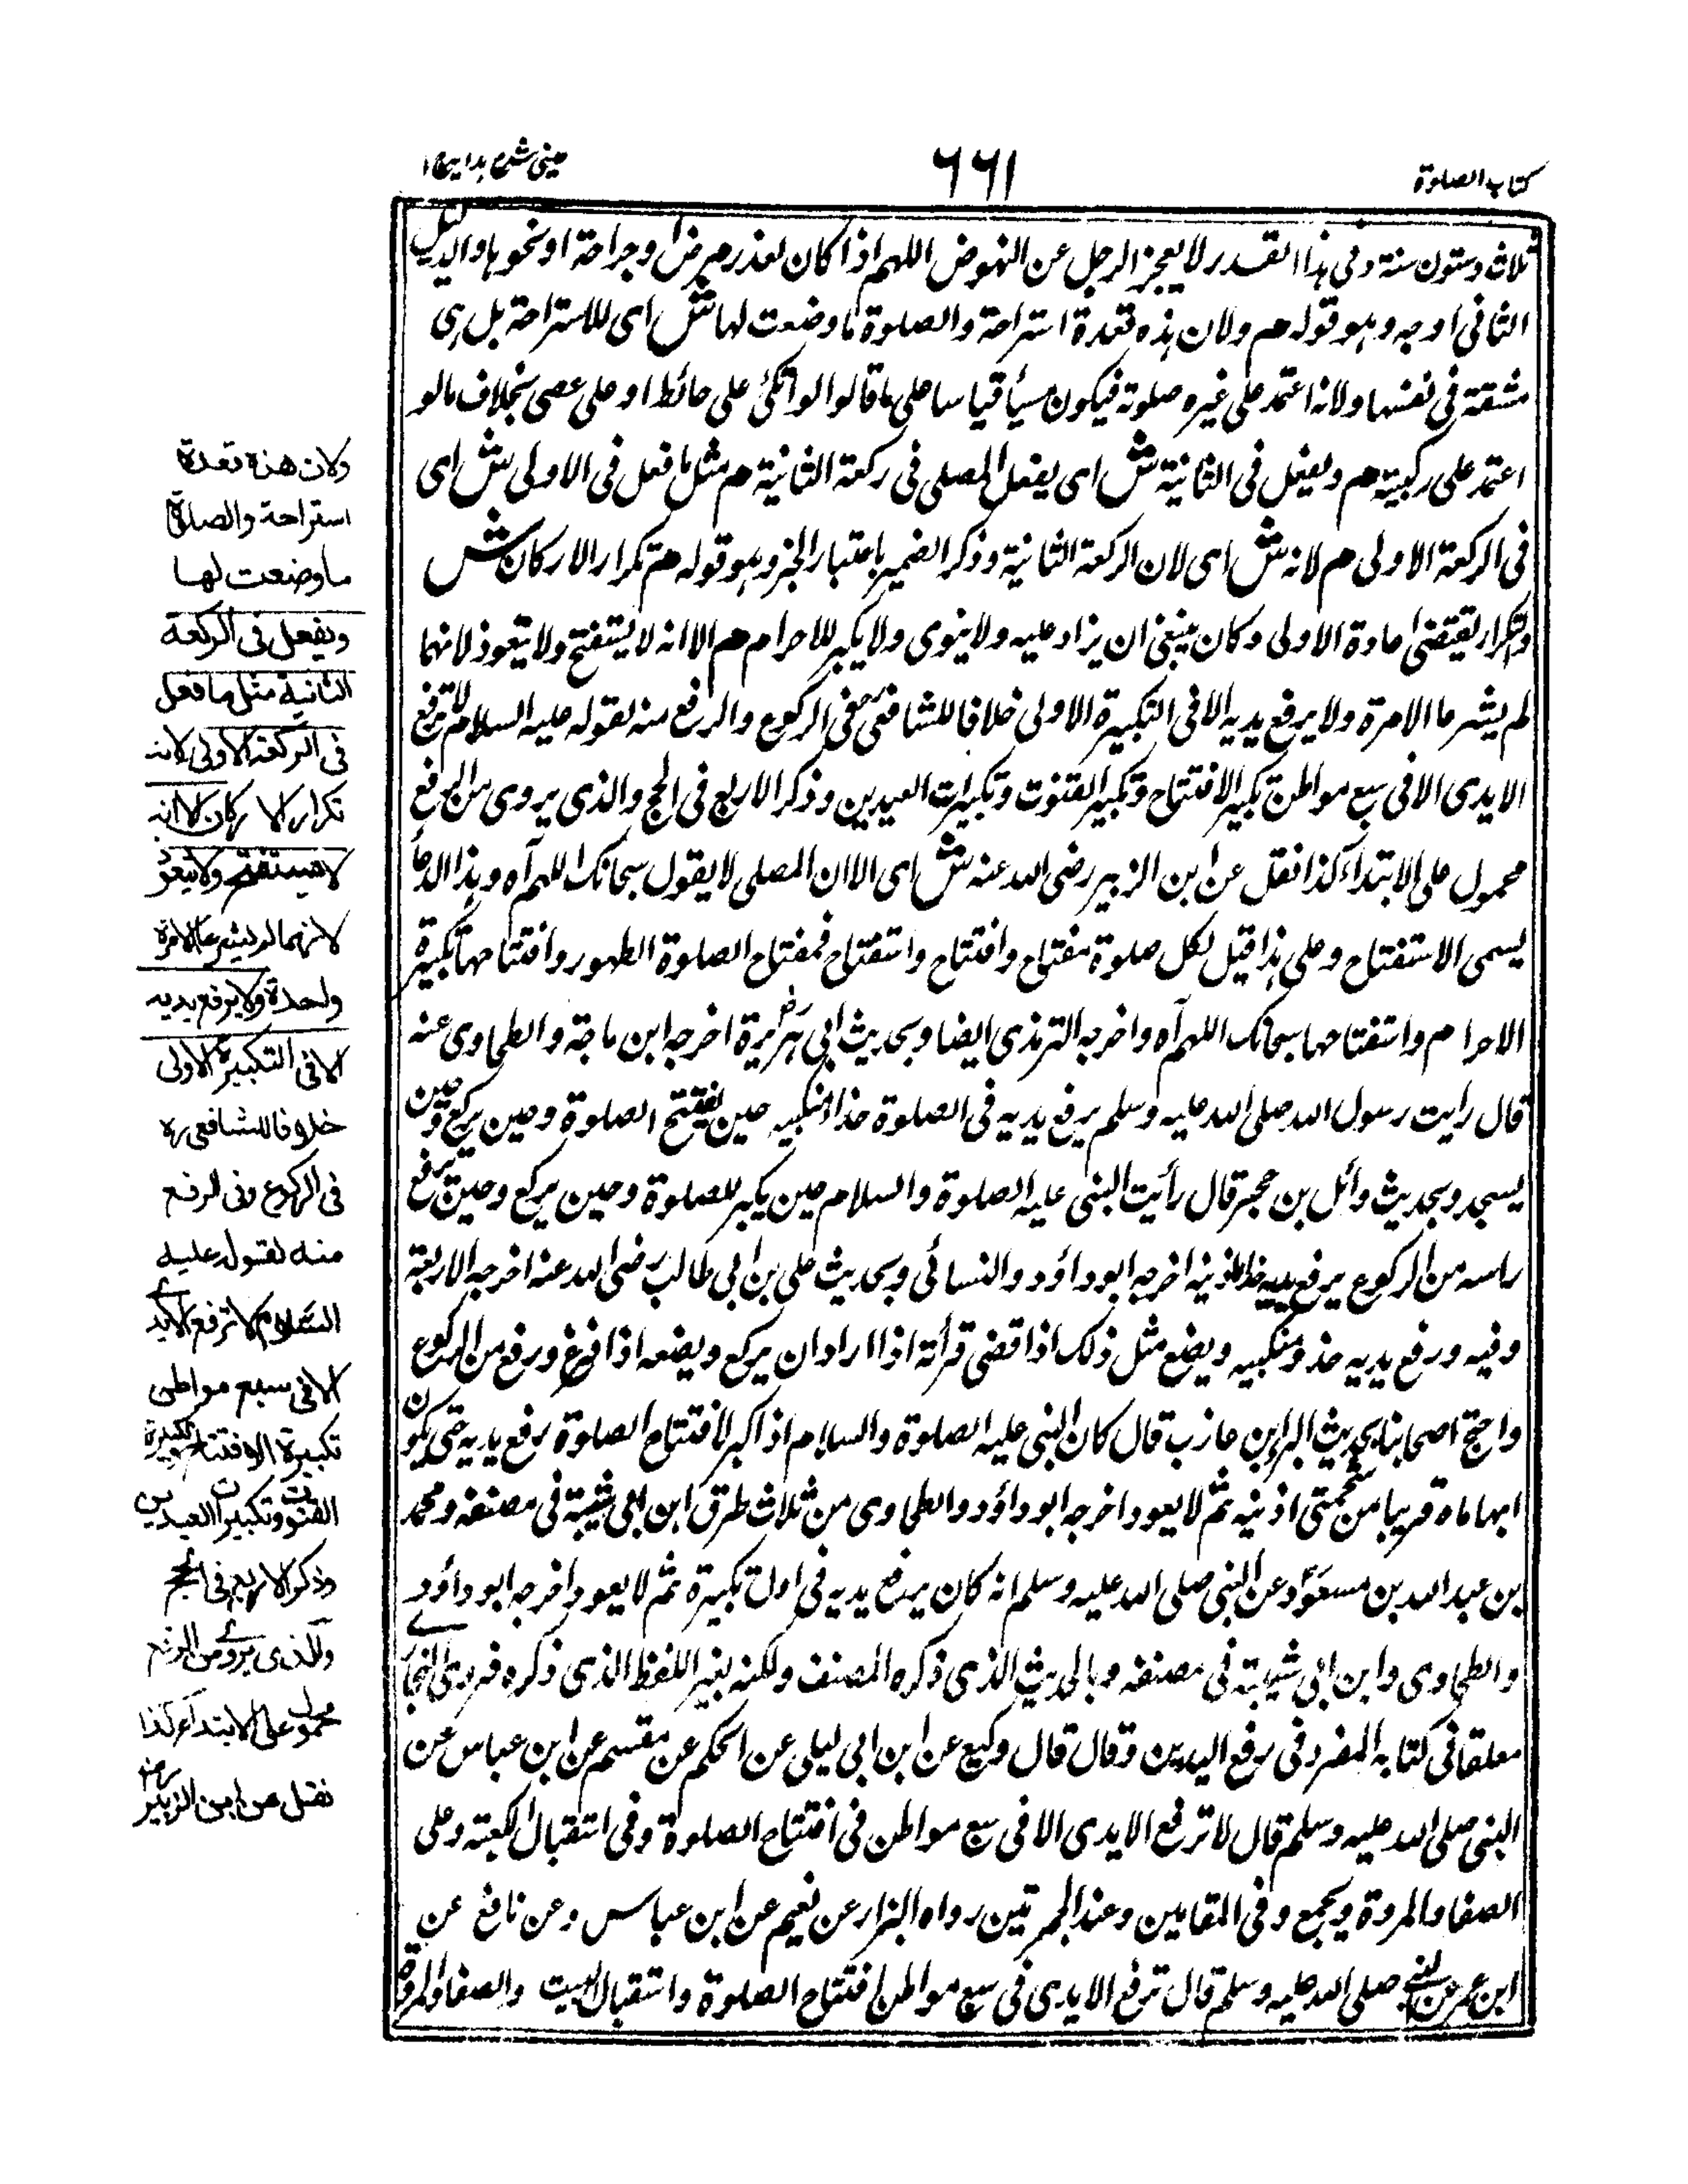 كتاب الصلوة
٦٦١
عینی شرح ہدایہ ج ١
ثلاث وستون سنة وفى هذا القدر لا يعجز الرجل عن النهوض اللهم اذا كان لعذر مرض او جراحة او نحوها والدليل
الثانى اوجه وهو قوله م ولان هذه قعدة استراحة والصلوة ما وضعت لها ش اى للاستراحة بل هى
مشقة فى نفسها ولانه اعتمد على غيره صلوته فيكون مسيأ قياسا على ما قالوا لو اتكئ على حائط او على عصى بخلاف ما لو
اعتمد على ركبتيه م ويفعل فى الثانية ش اى يفعل المصلى فى ركعة الثانية م مثل ما فعل فى الاولى ش اى
فى الركعة الاولى م لانه ش اى لان الركعة الثانية وذكر الضمير باعتبار الخبر وهو قوله م تكرار الاركان ش
والتكرار يقتضى اعادة الاولى وكان ينبغى ان يزاد عليه ولا ينوى ولا يكبر للاحرام م الا انه لا يستفتح ولا يتعوذ لانهما
لم يشرعا الا مرة ولا يرفع يديه الا فى التكبيرة الاولى خلافا للشافعى فى الركوع والرفع منه لقوله عليه السلام لا ترفع
الايدى الا فى سبع مواطن تكبيرة الافتتاح وتكبيرة القنوت وتكبيرات العيدين وذكر الاربع فى الحج والذى يروى من الرفع
محمول على الابتداء كذا نقل عن ابن الزبير رضى الله عنه ش اى الا ان المصلى لا يقول سبحانك اللهم آه وهذا الدعاء
يسمى الاستفتاح وعلى هذا قيل لكل صلوة مفتاح وافتتاح واستفتاح فمفتاح الصلوة الطهور وافتتاحها تكبيرة
الاحرام واستفتاحها سبحانك اللهم آه واخرجه الترمذى ايضا وبحديث ابى هريرة اخرجه ابن ماجة والطحاوى عنه
قال رايت رسول الله صلى الله عليه وسلم يرفع يديه فى الصلوة حذاء منكبيه حين يفتتح الصلوة وحين يركع وحين
يسجد وبحديث وائل بن حجر قال رأيت النبى عليه الصلوة والسلام حين يكبر للصلوة وحين يركع وحين يرفع
راسه من الركوع يرفع يديه حذاء اذنيه اخرجه ابو داؤد والنسائى وبحديث على بن ابى طالب رضى الله عنه اخرجه الاربعة
وفيه ورفع يديه حذو منكبيه ويضع مثل ذلك اذا قضى قرأته اذا اراد ان يركع ويضعه اذا فرغ ورفع من الركوع
واحتج اصحابنا بحديث البراء بن عازب قال كان النبى عليه الصلوة والسلام اذا كبر لافتتاح الصلوة رفع يديه حتى يكون
ابهاماه قريبا من شحمتى اذنيه ثم لا يعود اخرجه ابو داؤد والطحاوى من ثلاث طرق ابن ابى شيبة فى مصنفه ومحمد
بن عبد الله بن مسعود عن النبى صلى الله عليه وسلم انه كان يرفع يديه فى اول تكبيرة ثم لا يعود اخرجه ابو داؤد
والطحاوى وابن ابى شيبة فى مصنفه وبالحديث الذى ذكره المصنف ولكنه بغير اللفظ الذى ذكره فروى البخارى
معلقا فى كتابه المفرد فى رفع اليدين وقال قال وكيع عن ابن ابى ليلى عن الحكم عن مقسم عن ابن عباس عن
النبى صلى الله عليه وسلم قال لا ترفع الايدى الا فى سبع مواطن فى افتتاح الصلوة وفى استقبال الكعبة وعلى
الصفا والمروة وبجمع وفى المقامين وعند الجمرتين رواه البزار عن نعيم عن ابن عباس وعن نافع عن
ابن عمر عن النبى صلى الله عليه وسلم قال ترفع الايدى فى سبع مواطن افتتاح الصلوة واستقبال البيت والصفا والمروة
ولان هذه قعدة
استراحة والصلاة
ما وضعت لها
ويفعل فى الركعة
الثانية مثل ما فعل
فى الركعة الاولى لانه
تكرار الاركان الا انه
لا يستفتح ولا يتعوذ
لانهما لم يشرعا الا مرة
واحدة ولا يرفع يديه
الا فى التكبيرة الاولى
خلافا للشافعى ره
فى الركوع وفى الرفع
منه لقوله عليه
السلام لا ترفع الايدى
الا فى سبع مواطن
تكبيرة الافتتاح وتكبيرة
القنوت وتكبيرات العيدين
وذكر الاربع فى الحج
والذى يروى من الرفع
محمول على الابتداء كذا
نقل عن ابن الزبير رض